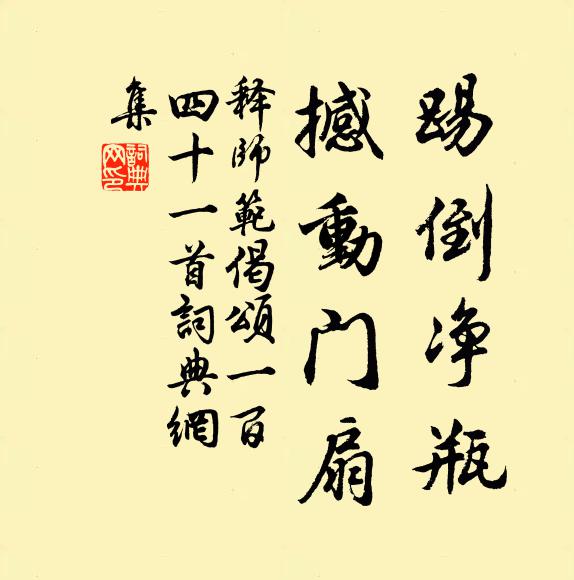 踢倒净瓶
撼動门扇
释師範偈頌一百
四十一首詞典網
集
詞典网印